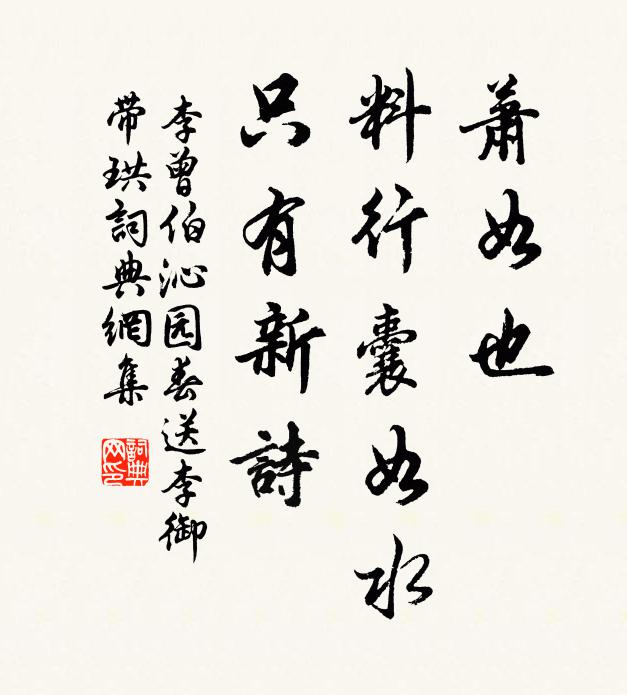 萧如也
料行囊如水
只有新詩
李曾伯沁园春送李御
带珙詞典網集
詞典网印